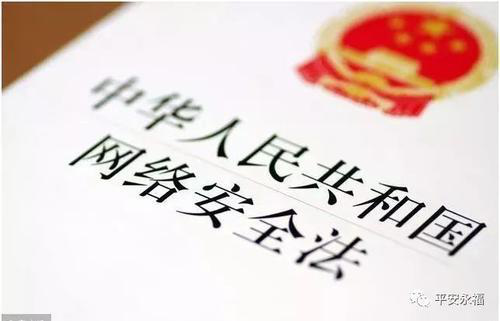 中华人民共和国
网络安全法
平安永福